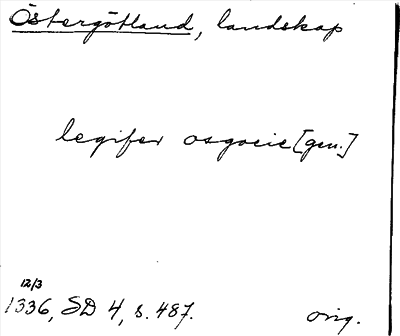 Östergötland, landskap
legifer osgocie [gen.]
12/3
1336, SD 4, s. 487.
orig.